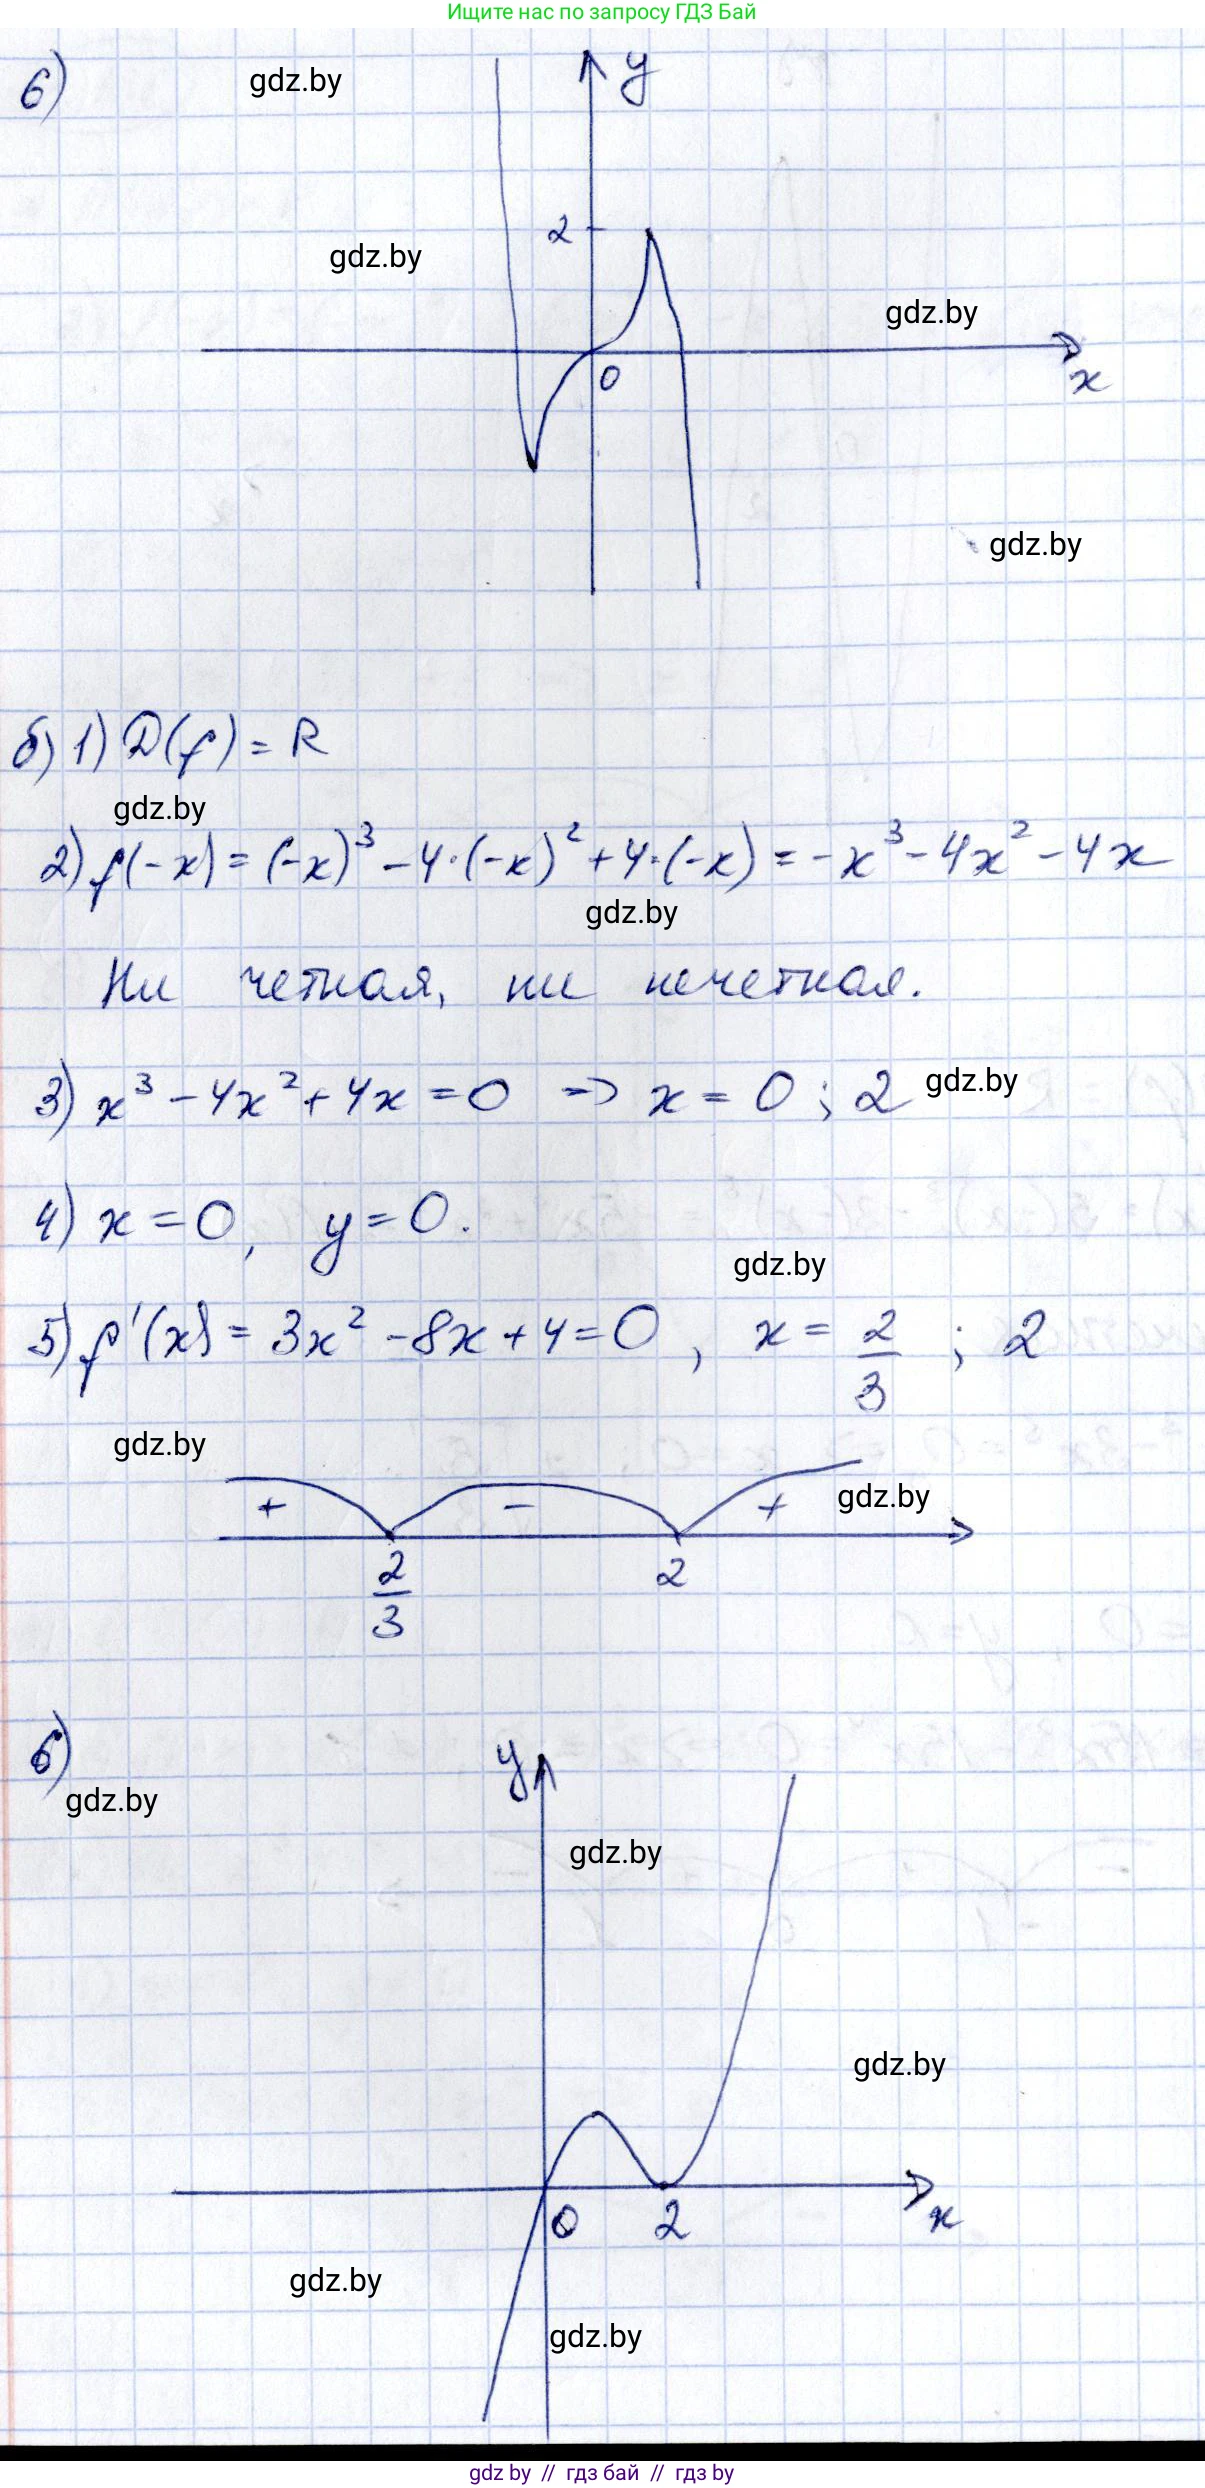 Ищите нас по запросу ГДЗ Бай
6)
gdz.by
y
2
gdz.by
gdz.by
0
x
gdz.by
б) 1) D(f) = R
gdz.by
2) f(-x) = (-x)³ - 4·(-x)² + 4·(-x) = -x³ - 4x² - 4x
gdz.by
Ни четная, ни нечетная.
3) x³ - 4x² + 4x = 0 => x = 0 ; 2
gdz.by
4) x = 0, y = 0.
gdz.by
5) f'(x) = 3x² - 8x + 4 = 0 , x = 2/3 ; 2
gdz.by
+ - +
gdz.by
2/3 2
6)
y
gdz.by
gdz.by
gdz.by
0 2 x
gdz.by
gdz.by
gdz by // гдз бай // гдз by